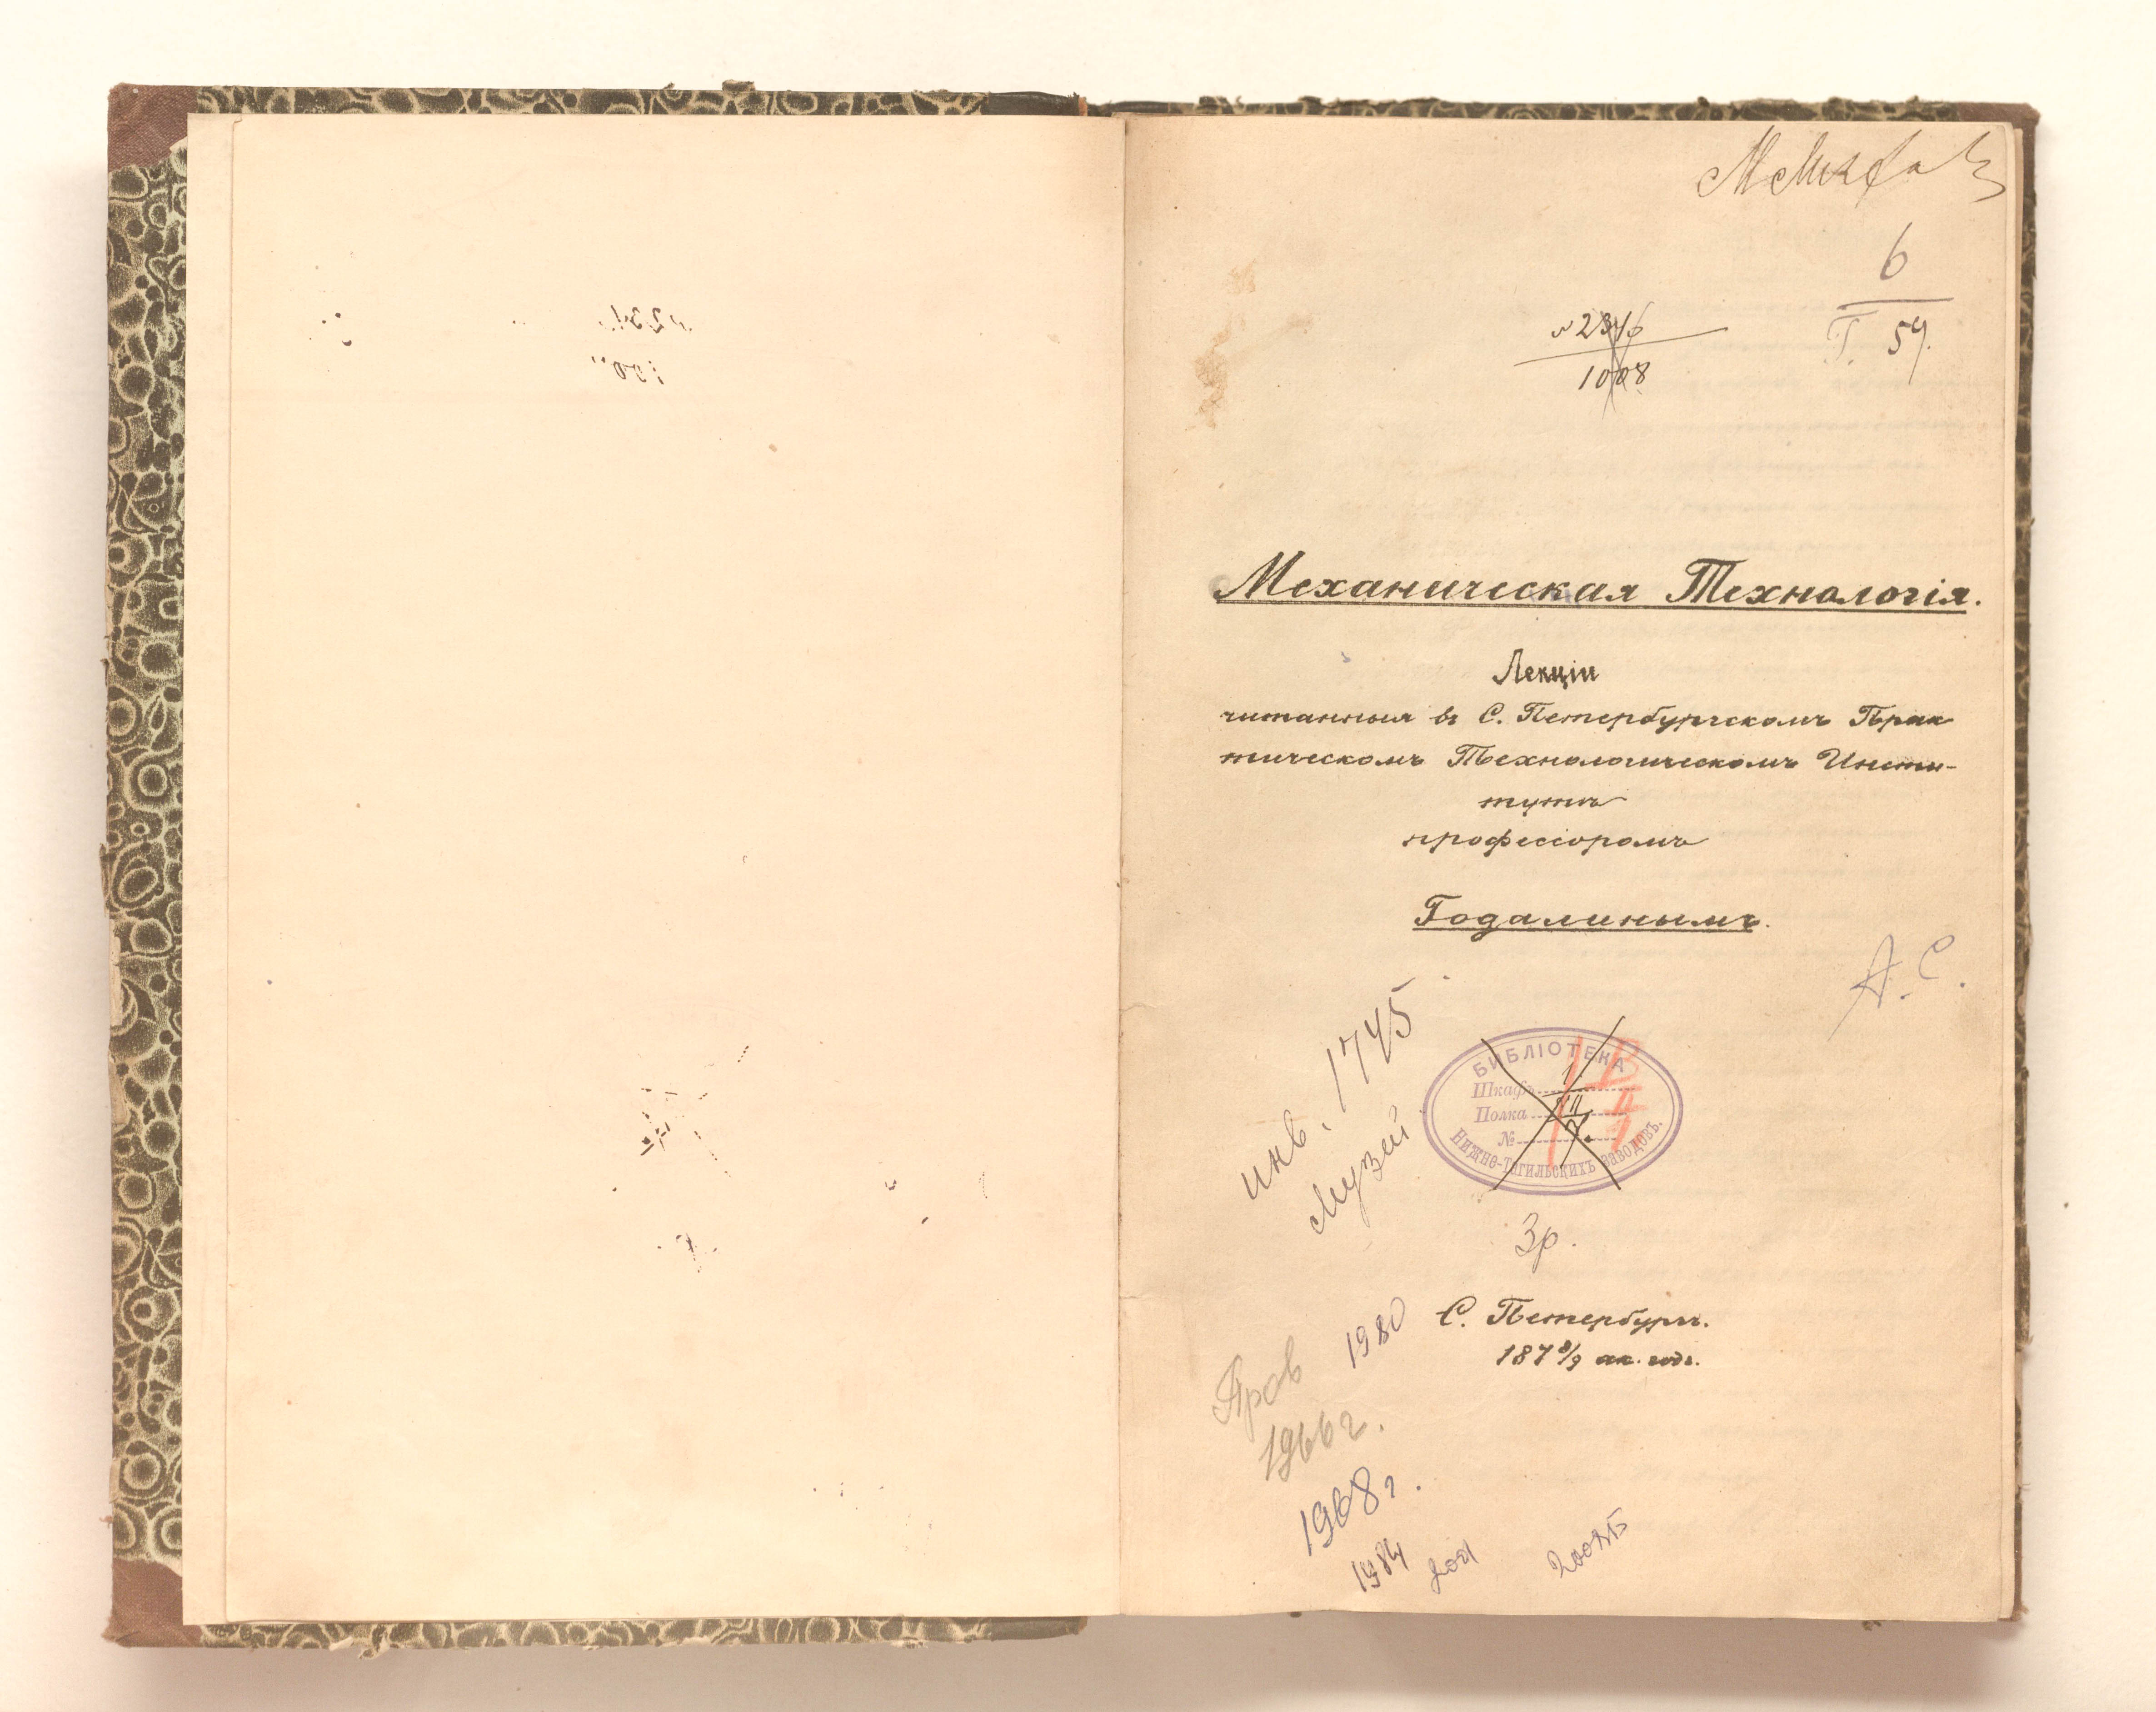 6
Г. 59.
№ 2346
1008
Механическая Технологія.
Лекціи
читанныя въ С. Петербургскомъ Прак
тическомъ Технологическомъ Инсти-
тутѣ
профессоромъ
Годалинымъ.
А.С.
инв. 1745
Музей
БИБЛІОТЕКА
Шкафъ
Полка
№
Нижне-Тагильскихъ Заводовъ.
3р.
С. Петербургъ.
187 8/9 ак. годъ.
Пров 1980
1966 г.
1968 г.
1984